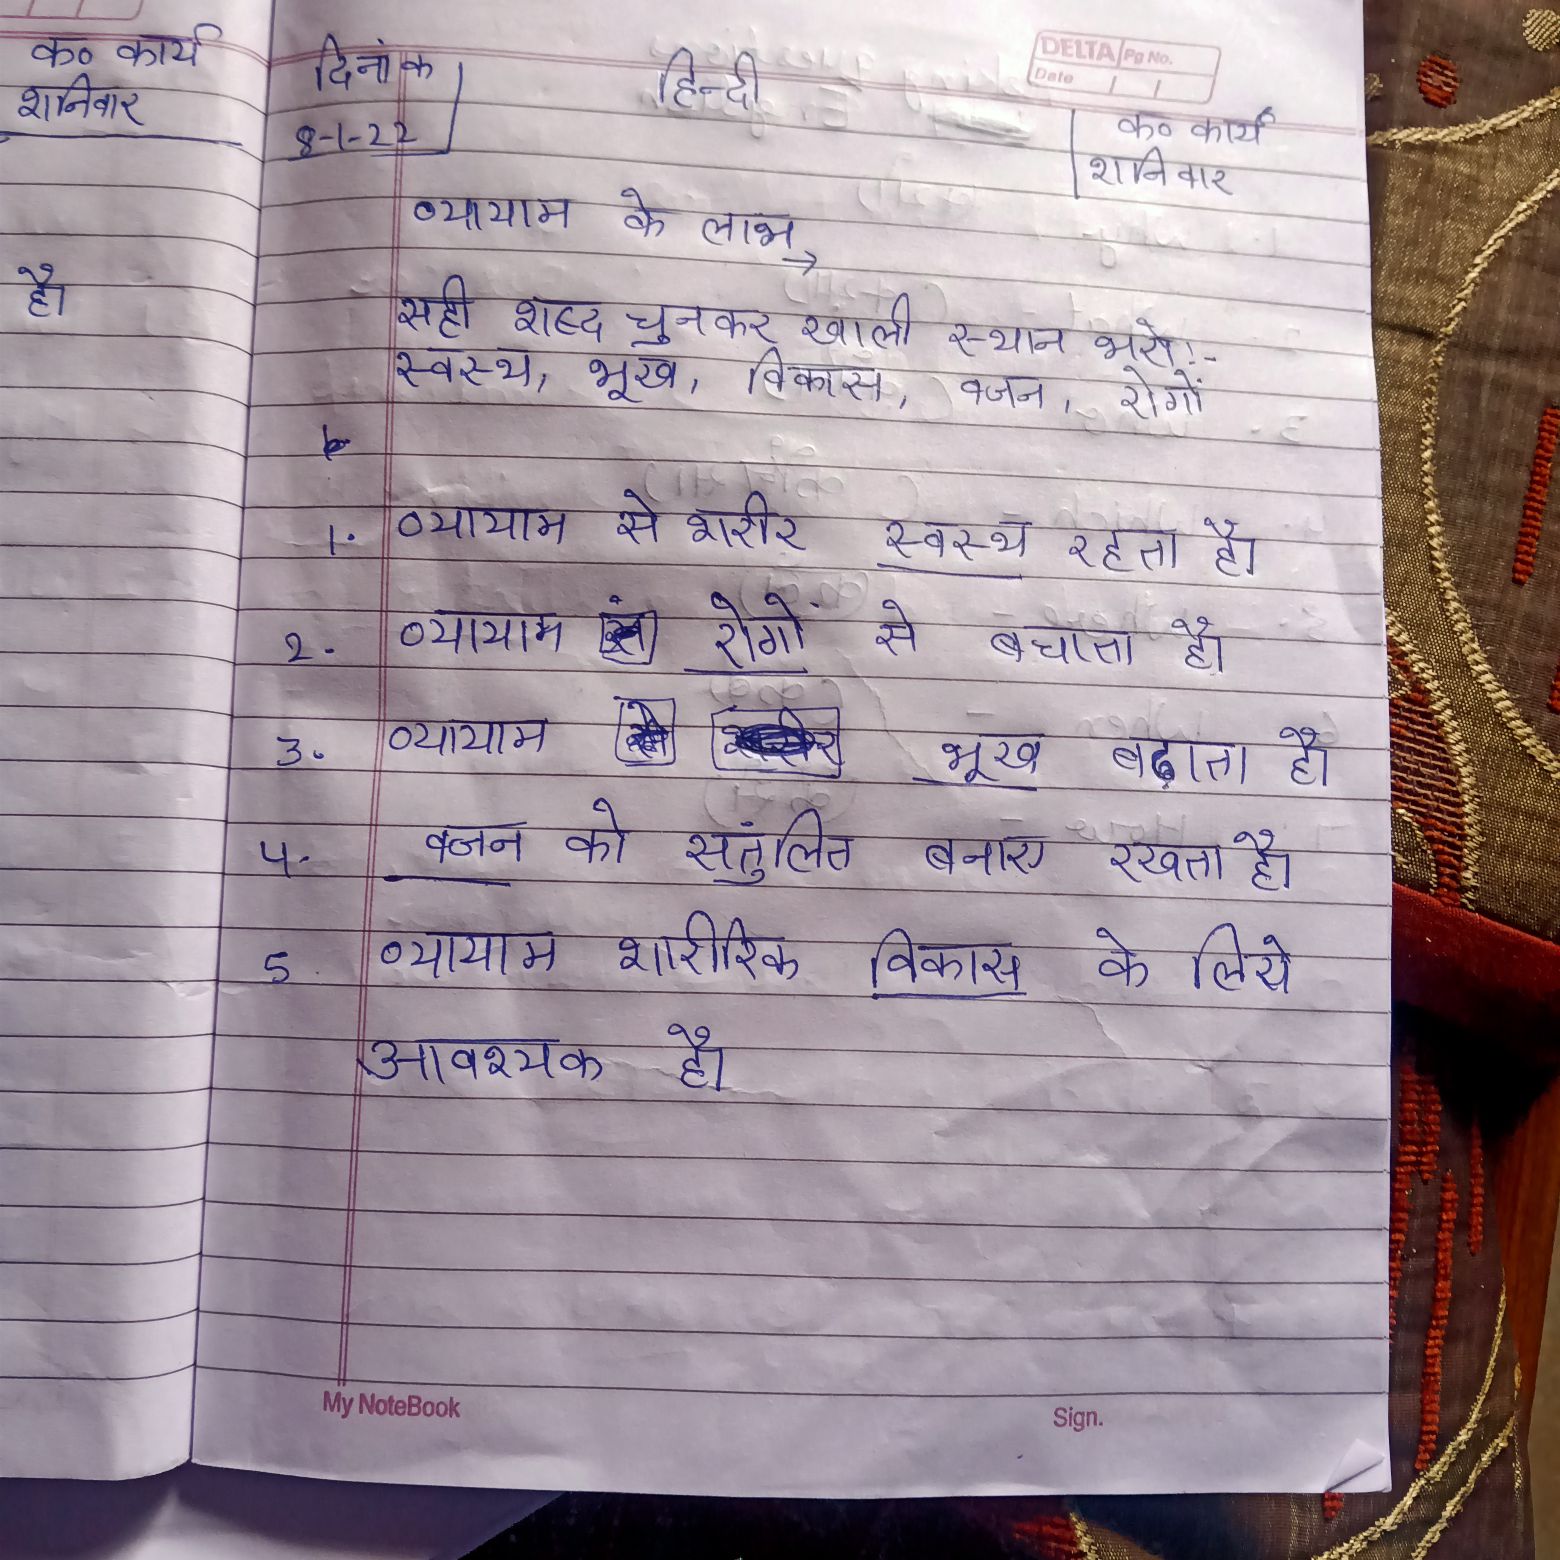 क० कार्य
शनिवार
है।
दिनांक
8-1-22
हिन्दी
DELTA Pg No.
Date / /
क० कार्य
शनिवार
व्यायाम के लाभ →
सही शब्द चुनकर खाली स्थान भरो:-
स्वस्थ, भूख, विकास, वजन, रोगों
1. व्यायाम से शरीर स्वस्थ रहता है।
2. व्यायाम रोगों से बचाता है।
3. व्यायाम भूख बढ़ाता है।
4. वजन को सतुंलित बनाए रखता है।
5 व्यायाम शारीरिक विकास के लिये
आवश्यक है।
My NoteBook
Sign.